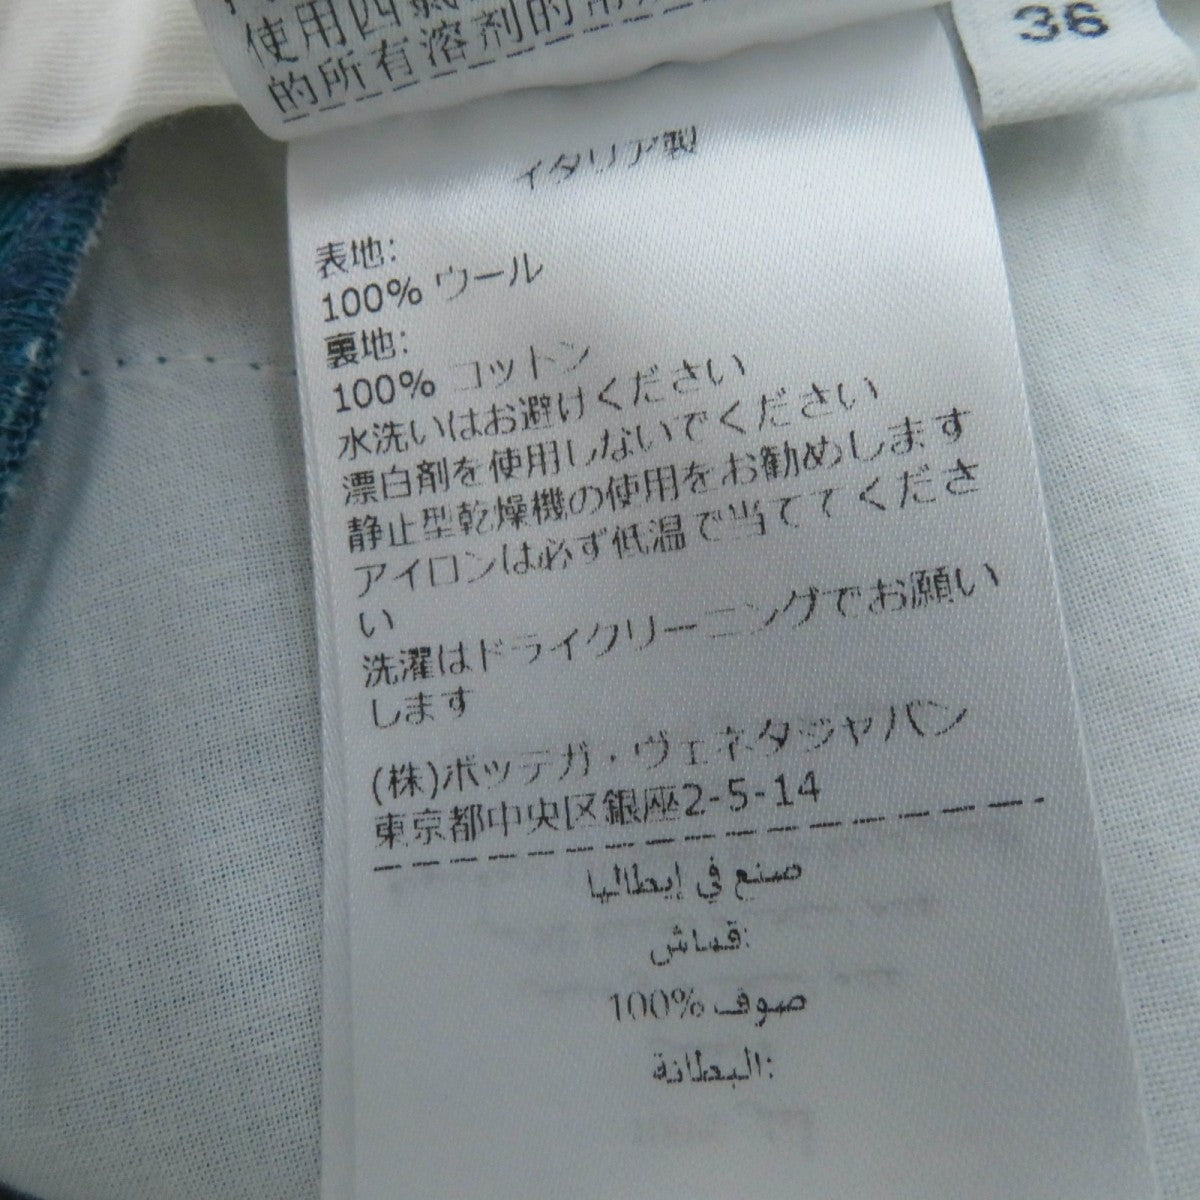 使用四氯
的所有溶剂的常规
36
イタリア製
表地:
100% ウール
裏地:
100% コットン
水洗いはお避けください
漂白剤を使用しないでください
静止型乾燥機の使用をお勧めします
アイロンは必ず低温で当ててくださ
い
洗濯はドライクリーニングでお願い
します
(株)ボッテガ・ヴェネタジャパン
東京都中央区銀座2-5-14
صنع في إيطاليا
قماش:
100% صوف
البطانة: